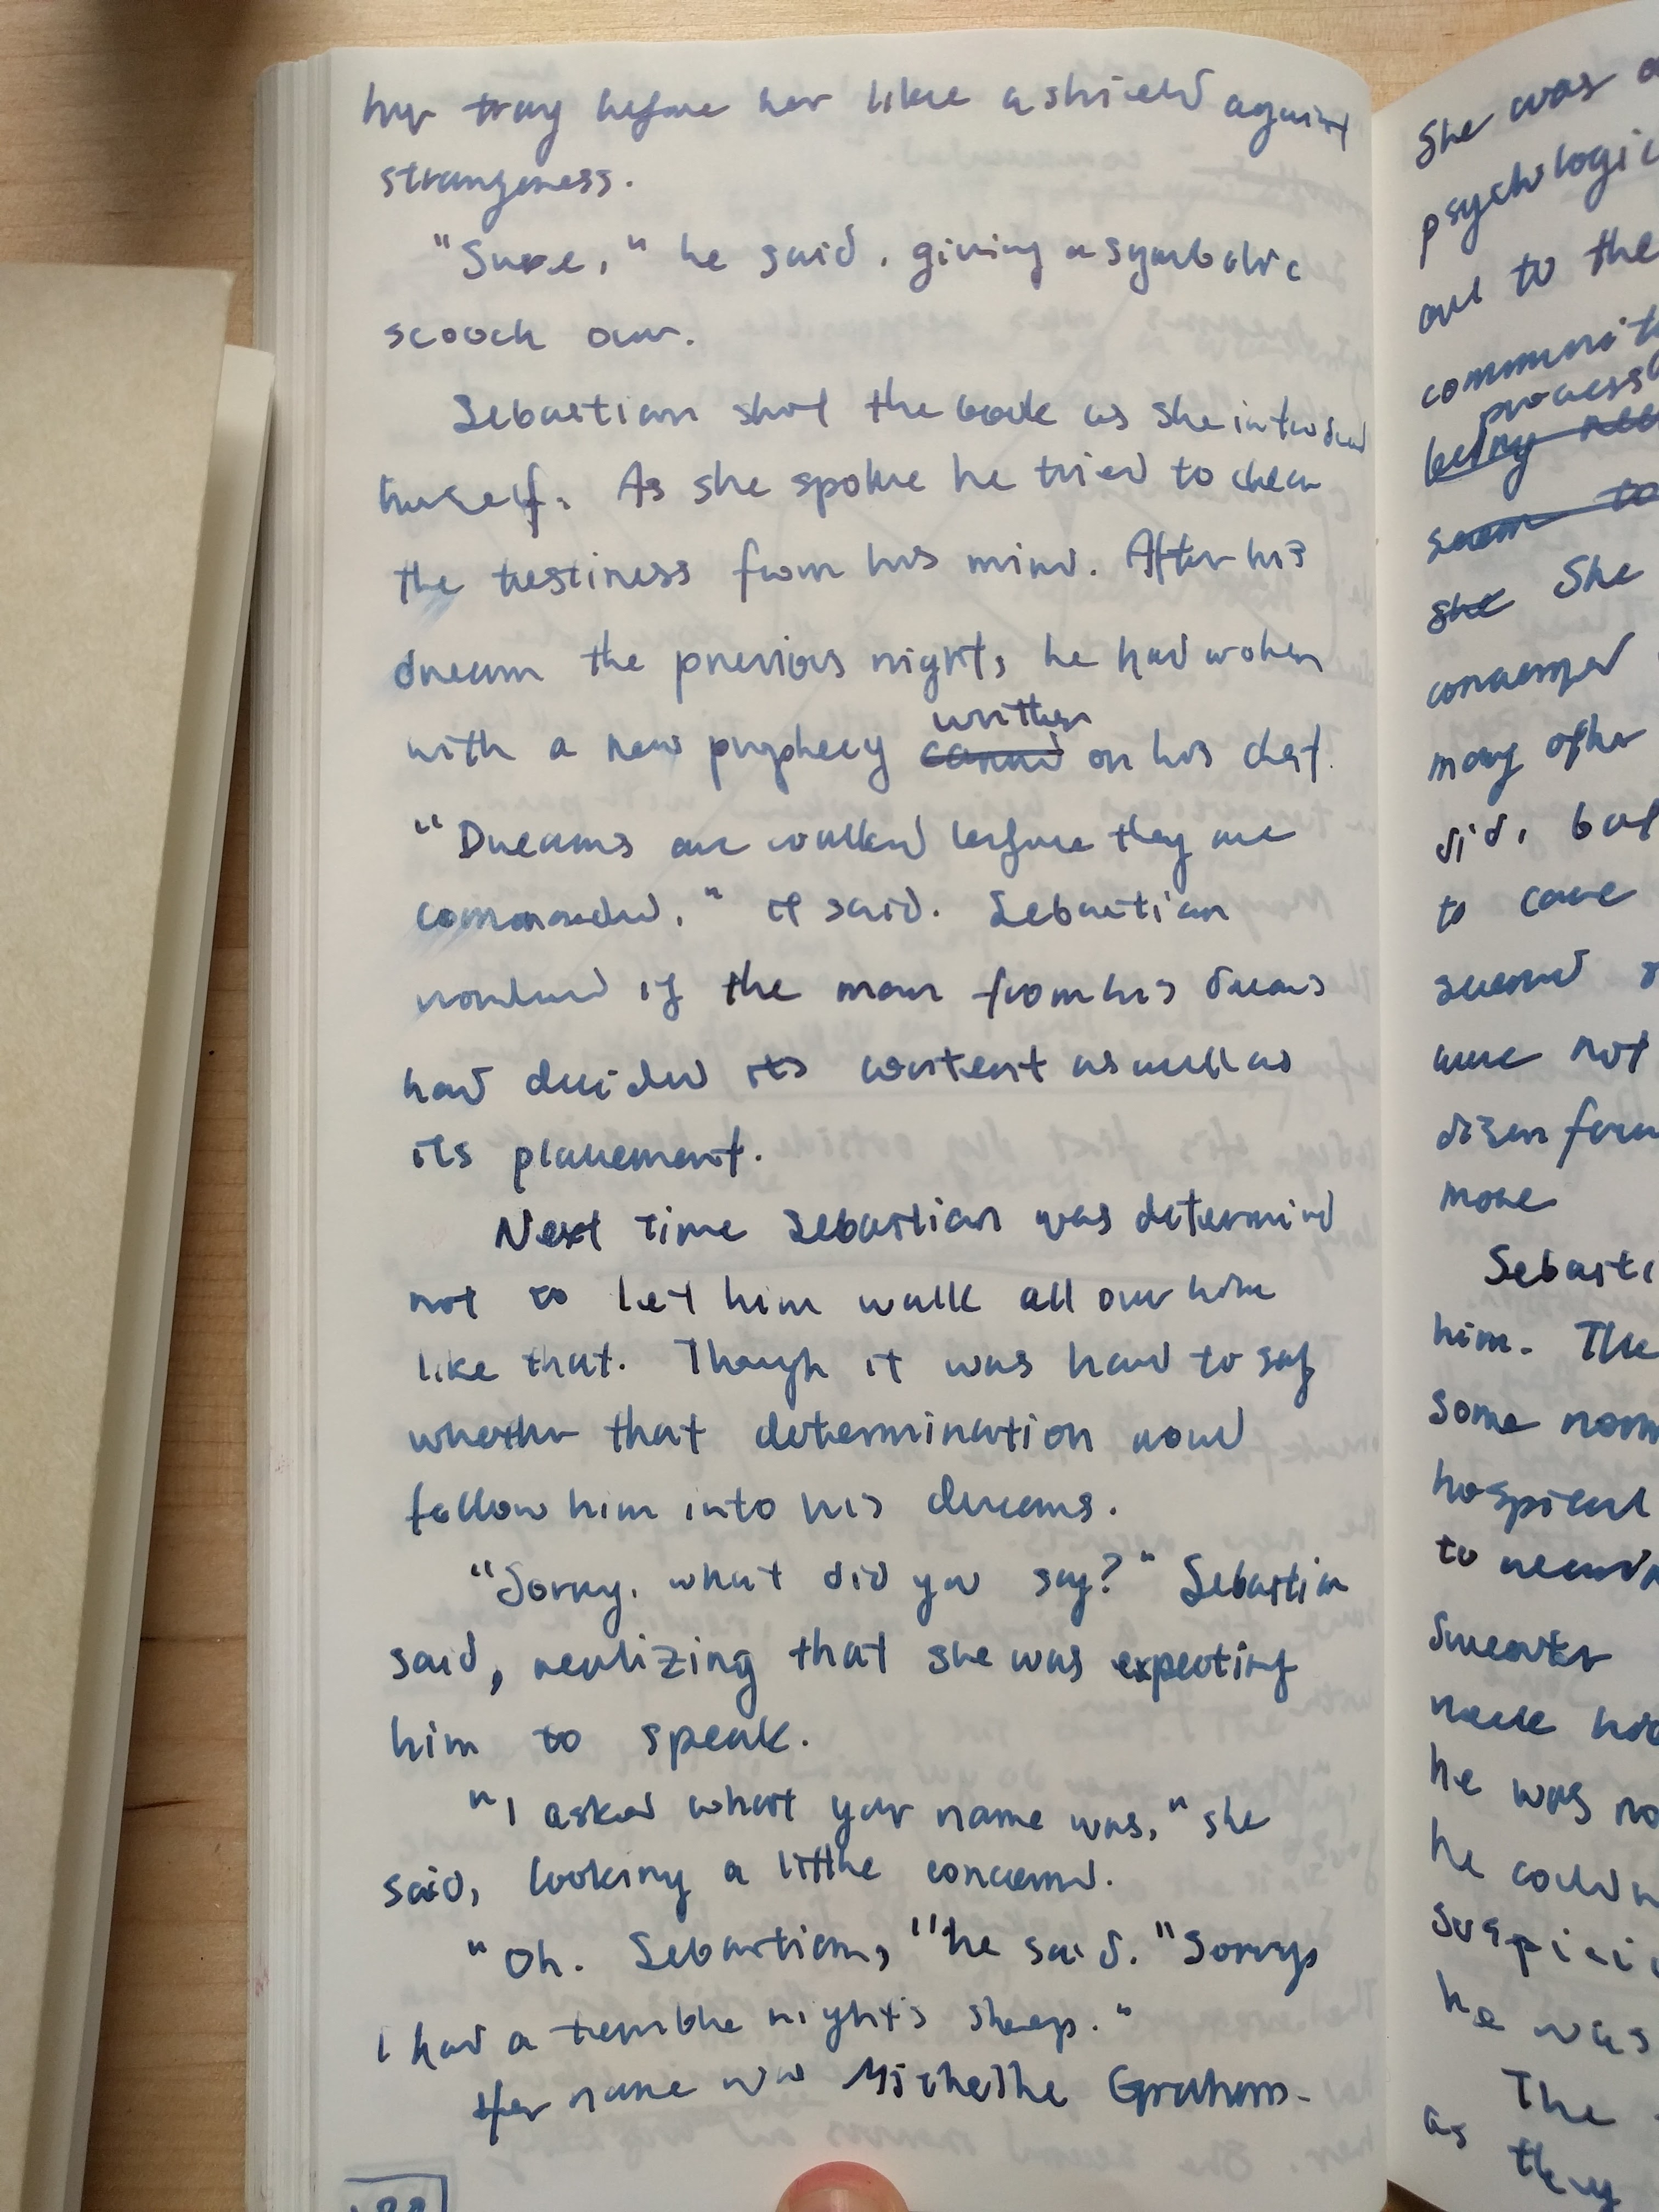 her tray before her like a shield against
strangeness.
"Sure," he said, giving a symbolic
scooch over.
Sebastian shut the book as she introduced
herself. As she spoke he tried to clear
the testiness from his mind. After his
dream the previous night, he had woken
with a new prophecy carved written on his chest.
"Dreams are walked before they are
commanded," it said. Sebastian
wondered if the man from his dreams
had decided its content as well as
its placement.
Next time Sebastian was determined
not to let him walk all over him
like that. Though it was hard to say
whether that determination would
follow him into his dreams.
"Sorry, what did you say?" Sebastian
said, realizing that she was expecting
him to speak.
"I asked what your name was," she
said, looking a little concerned.
"Oh. Sebastian," he said. "Sorry,
I had a terrible night's sleep."
Her name was Michelle Graham.
She was
psychologic
out to the
communit
process
being
seem to
she She
concerned
many other
did, but
to come
second
were not
more
Sebasti
him. The
some norm
hospital
to
sweater
neck
he was no
he couldn
suspici
he was
The
as they